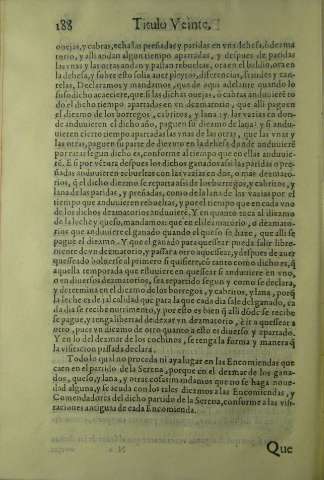 188 Titulo Veinte,
ouejas, y cabras, echa las preñadas y paridas en vna dehesa, ò dezma
torio, y alli andan algun tiempo apartadas, y despues de paridas
las vnas y las otras andan y passan rebueltas, ora en el baldio, ora en
la dehesa, y sobre esto solia auer pleytos, diferencias, fraudes y cau-
telas, Declaramos y mandamos, que de aqui adelante quando lo
susodicho acaeciere, que si las dichas ouejas, ò cabras anduuierē to
do el dicho tiempo apartadas en vn dezmatorio, que alli paguen
el diezmo de los borregos, cabritos, y lana: y las vazias en don-
de anduuieren el dicho año, paguen su diezmo de lana: y si andu-
uieren cierto tiempo apartadas las vnas de las otras, que las vnas y
las otras, paguen su parte de diezmo en la dehesa donde anduuierē
por ratas segun dicho es, conforme al tiempo que en ellas anduuie-
rē. E si por vētura despues los dichos ganados assi las paridas o pre-
ñadas anduuieren rebueltas con las vazias en dos, o mas dezmato-
rios, q̄ el dicho diezmo se reparta assi de los borregos, y cabritos, y
lana de las paridas, y preñadas, como de la lana de las vazias por el
tiempo que anduuieren rebueltas, y por el tiempo que en cada vno
de los dichos dezmatorios anduuierē. Y en quanto toca al diezmo
de la leche y queso, mandamos que en el dezmatorio, o dezmato-
rios que anduuiere el ganado quando el queso se haze, que alli se
pague el diezmo. Y que el ganado para quessear pueda salir libre-
mente de vn dezmatorio, y passar a otro a quessear, y despues de auer
quesseado boluerse al primero si quisierē cō tanto como dicho es, q̄
aquella temporada que estuuiere en quessear si anduuiere en vno,
o en diuersos dezmatorios, sea repartido segun y como se declara,
y determina en el diezmo de los borregos, y cabritos, y lana, porq̄
la leche es de tal calidad que para la que cada dia sale del ganado, ca
da dia se recibe nutrimento, y por esto es bien q̄ alli dōde se recibe
se pague, y tenga libertad de dexar vn dezmatorio, è ir a quessear a
otro, pues vn diezmo de otro quanto a esto es diuerso y apartado.
Y en lo del dezmar de los cochinos, se tenga la forma y manera q̄
la visitacion passada declara.
Todo lo qual no proceda ni aya lugar en las Encomiendas que
caen en el partido de la Serena, porque en el dezmar de los gana-
dos, queso, y lana, y otras cosas mandamos que no se haga noue-
dad alguna, y se acuda con los tales diezmos a las Encomiendas, y
Comendadores del dicho partido de la Serena, conforme a las visi-
taciones antiguas de cada Encomienda.
Que